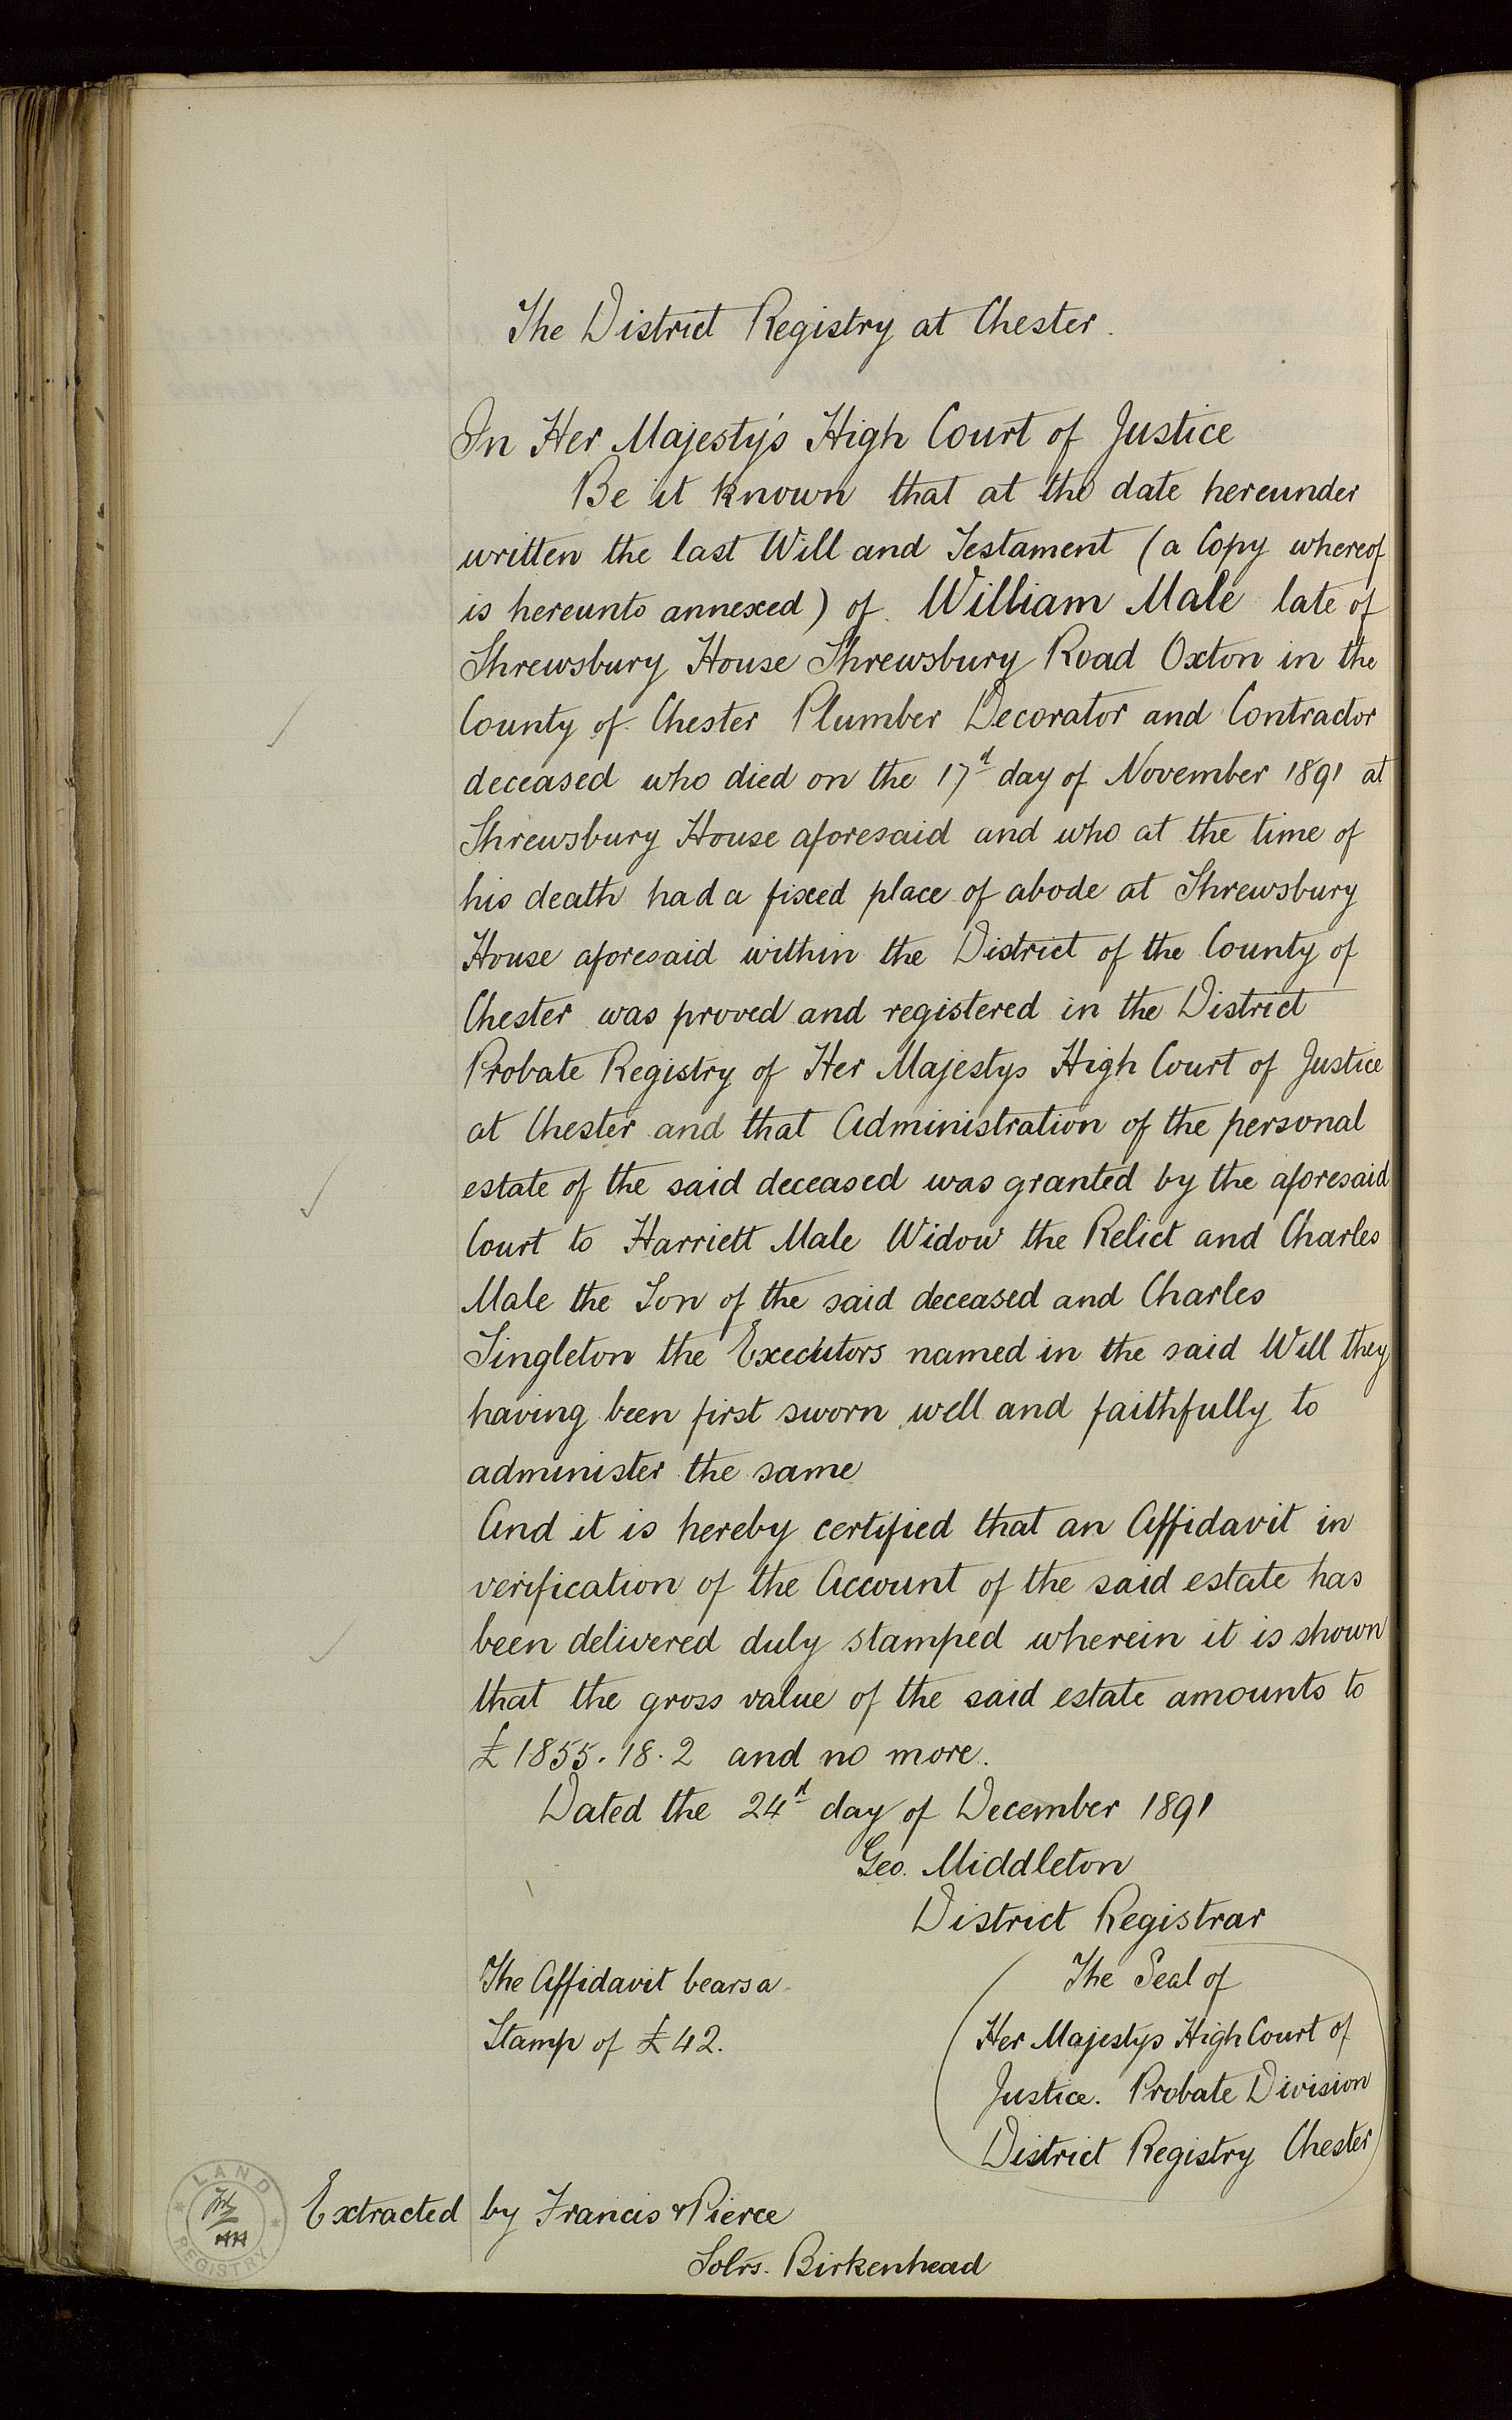 The District Registry at Chester.
In Her Majesty's High Court of Justice
Be it known that at the date hereunder
written the last Will and Testament (a Copy whereof
is hereunto annexed) of William Male late of
Shrewsbury House Shrewsbury Road Oxton in the
County of Chester Plumber Decorator and Contractor
deceased who died on the 17th day of November 1891 at
Shrewsbury House aforesaid and who at the time of
his death had a fixed place of abode at Shrewsbury
House aforesaid within the District of the County of
Chester was proved and registered in the District
Probate Registry of Her Majestys High Court of Justice
at Chester and that Administration of the personal
estate of the said deceased was granted by the aforesaid
Court to Harriett Male Widow the Relict and Charles
Male the Son of the said deceased and Charles
Singleton the Executors named in the said Will they
having been first sworn well and faithfully to
administer the same
And it is hereby certified that an Affidavit in
verification of the Account of the said estate has
been delivered duly stamped wherein it is shown
that the gross value of the said estate amounts to
£1855.18.2 and no more.
Dated the 24th day of December 1891
Geo. Middleton
District Registrar
The Affidavit bears a
Stamp of £42.
The Seal of
Her Majestys High Court of
Justice. Probate Division
District Registry Chester
Extracted by Francis & Pierce
Solrs. Birkenhead
LAND REGISTRY